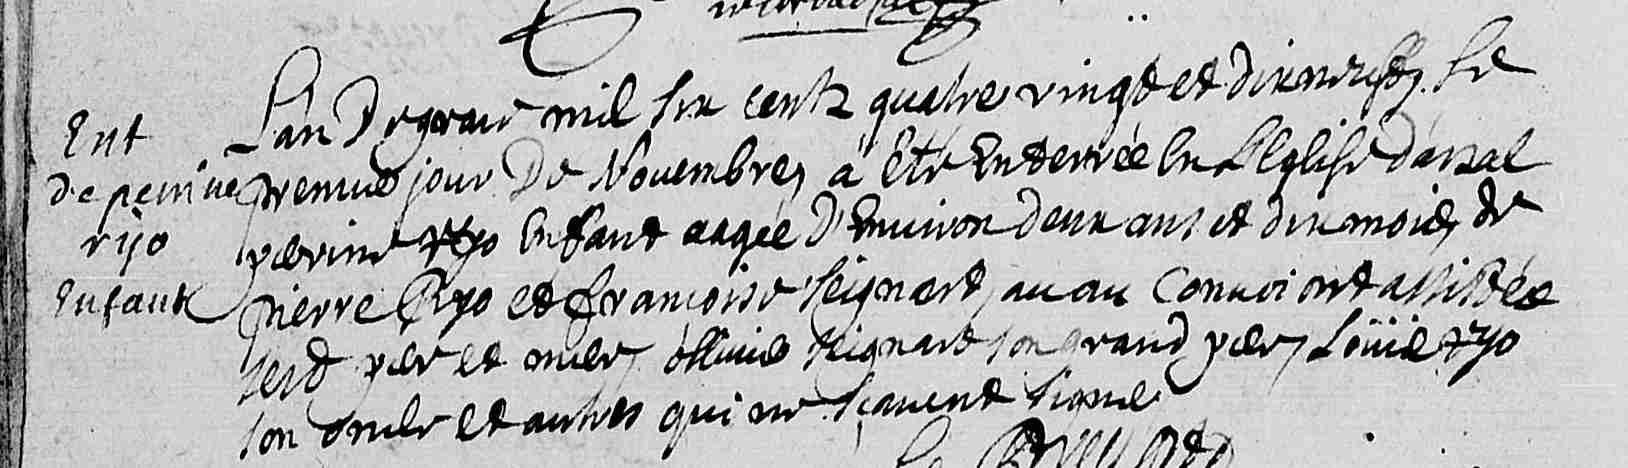 Ent
de perrine
ryo
Enfant
L'an De grace mil six cents quatre vingt et dixneuf, le
premie jour De Novembre, a été Enterrée En L'Eglise d'arzal
perine Ryo Enfant aagée D'Environ deux ans et dix mois, de
pierre Ryo et francoise seignard, au convoi ont assistée
lesd per et mer, ollivie seignard son grand per, Loüie ryo
son oncle et autres qui ne scavent signe